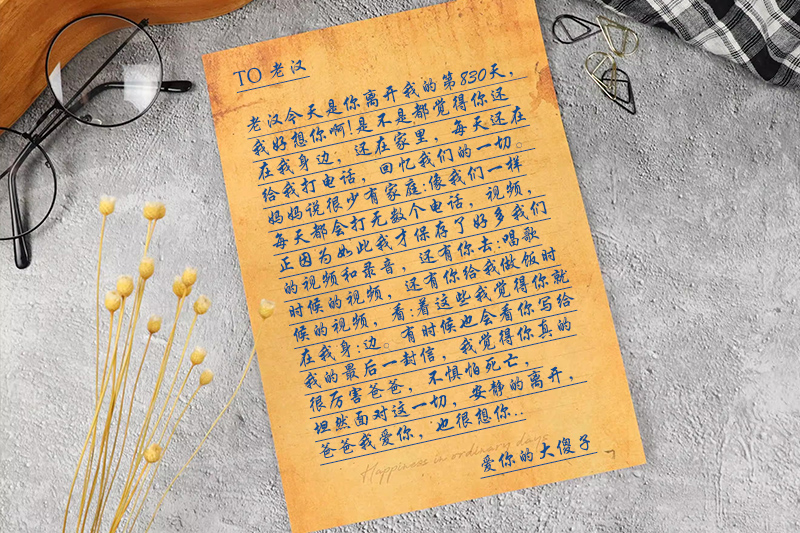 TO 老汉
老汉今天是你离开我的第830天，
我好想你啊!是不是都觉得你还
在我身边，还在家里，每天还在
给我打电话，回忆我们的一切。
妈妈说很少有家庭:像我们一样
每天都会打无数个电话，视频，
正因为如此我才保存了好多我们
的视频和录音，还有你去:唱歌
时候的视频，还有你给我做饭时
候的视频，看:着这些我觉得你就
在我身:边。有时候也会看你写给
我的最后一封信，我觉得你真的
很厉害爸爸，不惧怕死亡，
坦然面对这一切，安静的离开，
爸爸我爱你，也很想你..
Happiness in ordinary days
爱你的大傻子